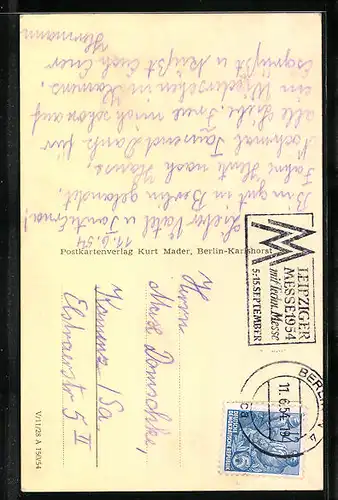 11.6.54
Lieber Vater u. Tante Erna!
Bin gut in Berlin gelandet.
Fahre heute nach Hause.
Nochmal Tausend Dank für
alle Liebe. Freue mich schon auf
ein Wiedersehen in Kamenz.
Es grüßt u. küßt Euch Euer
Hermann
Postkartenverlag Kurt Mader, Berlin-Karlshorst
LEIPZIGER
MESSE 1954
mit techn. Messe
5.-15. SEPTEMBER
BERLIN
11.6.54
DEUTSCHE
DEMOKRATISCHE REPUBLIK
Herrn
Max Domschke,
Kamenz / Sa
Elstraerstr 5 II
V/11/28 A 150/54